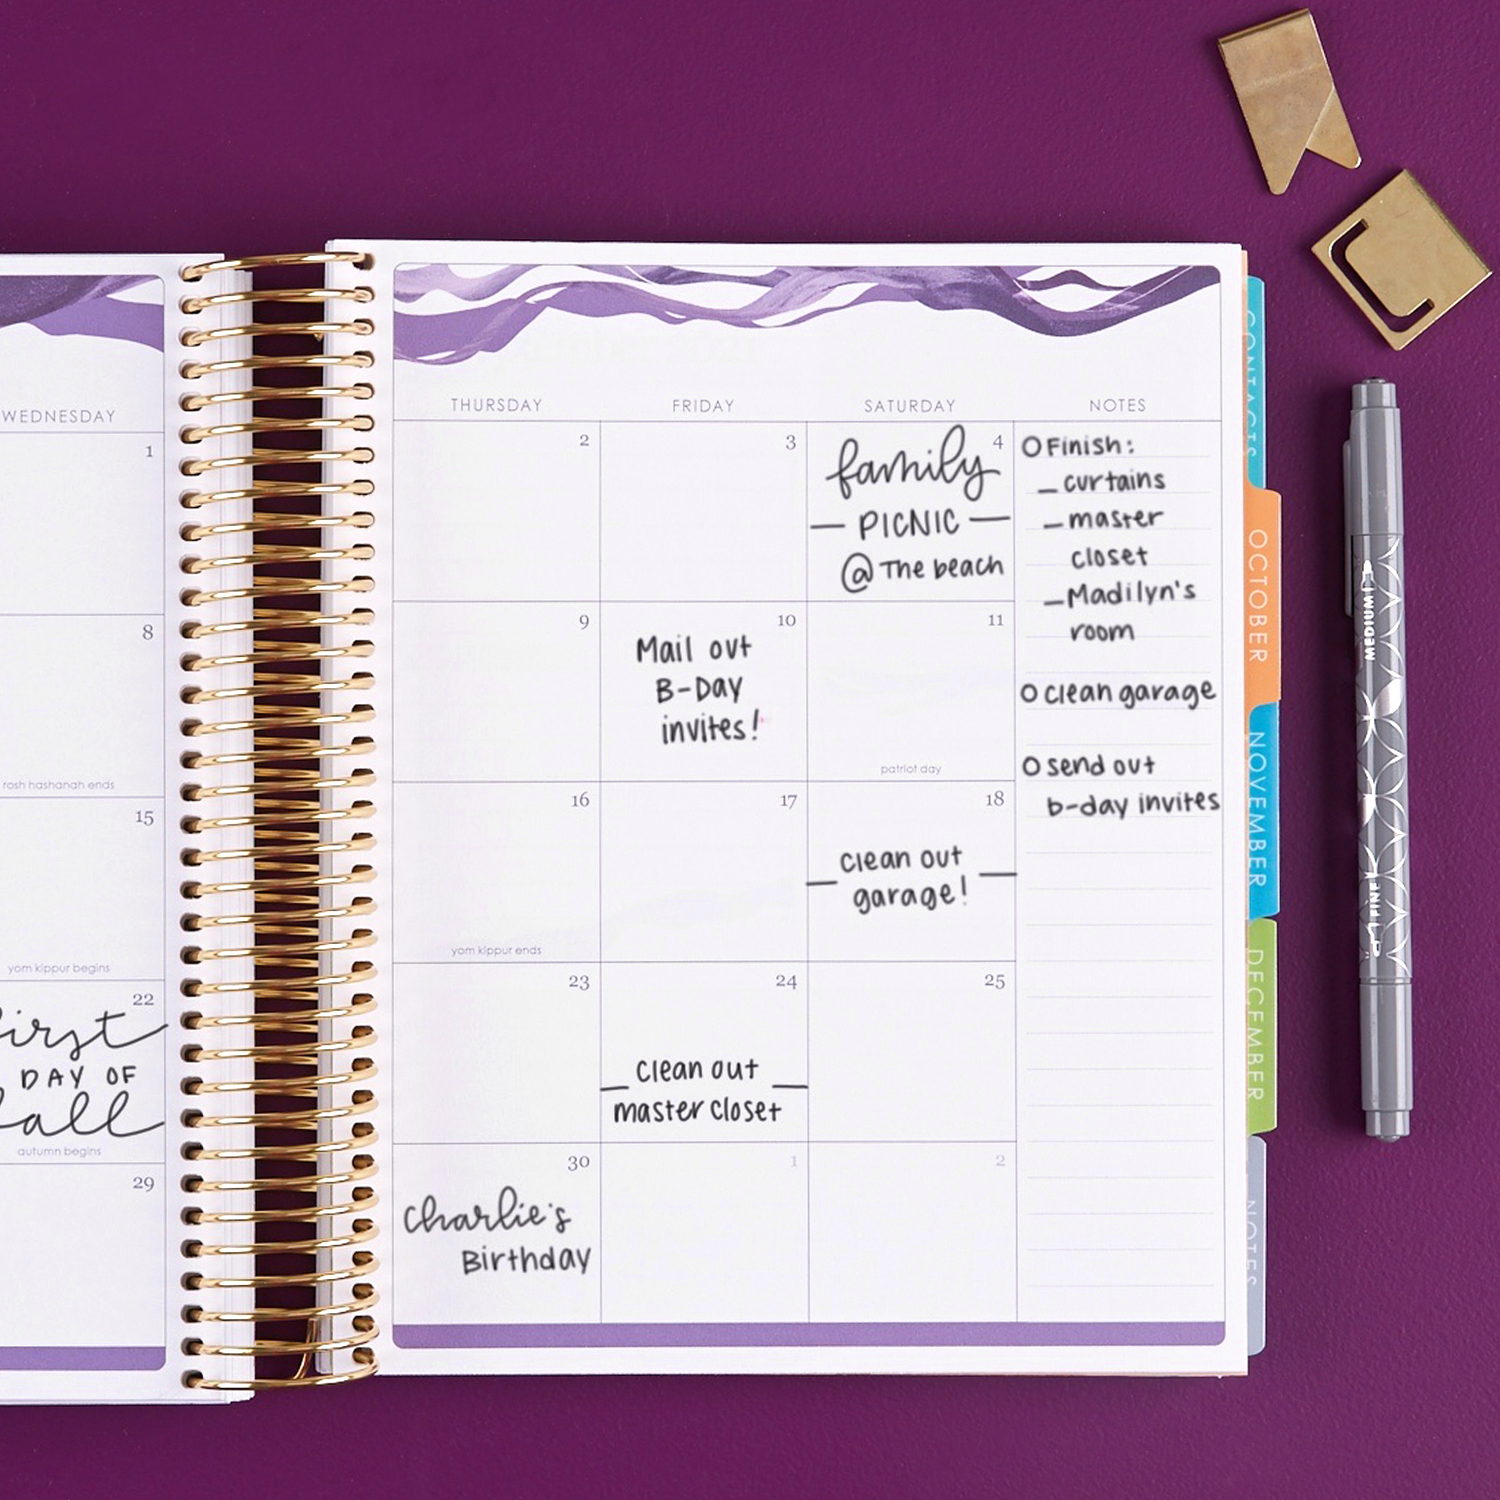 WEDNESDAY
1
8
rosh hashanah ends
15
yom kippur begins
22
first
DAY OF
fall
autumn begins
29
THURSDAY FRIDAY SATURDAY NOTES
2
3
4
family
PICNIC
@ The beach
9
10
Mail out
B-Day
invites!
11
patriot day
16
yom kippur ends
17
18
clean out
garage!
23
24
clean out
master closet
25
30
charlie's
Birthday
1
2
O Finish:
- curtains
- master
closet
- Madilyn's
room
O clean garage
O send out
b-day invites
CONTACTS
OCTOBER
NOVEMBER
DECEMBER
NOTES
MEDIUM
FINE